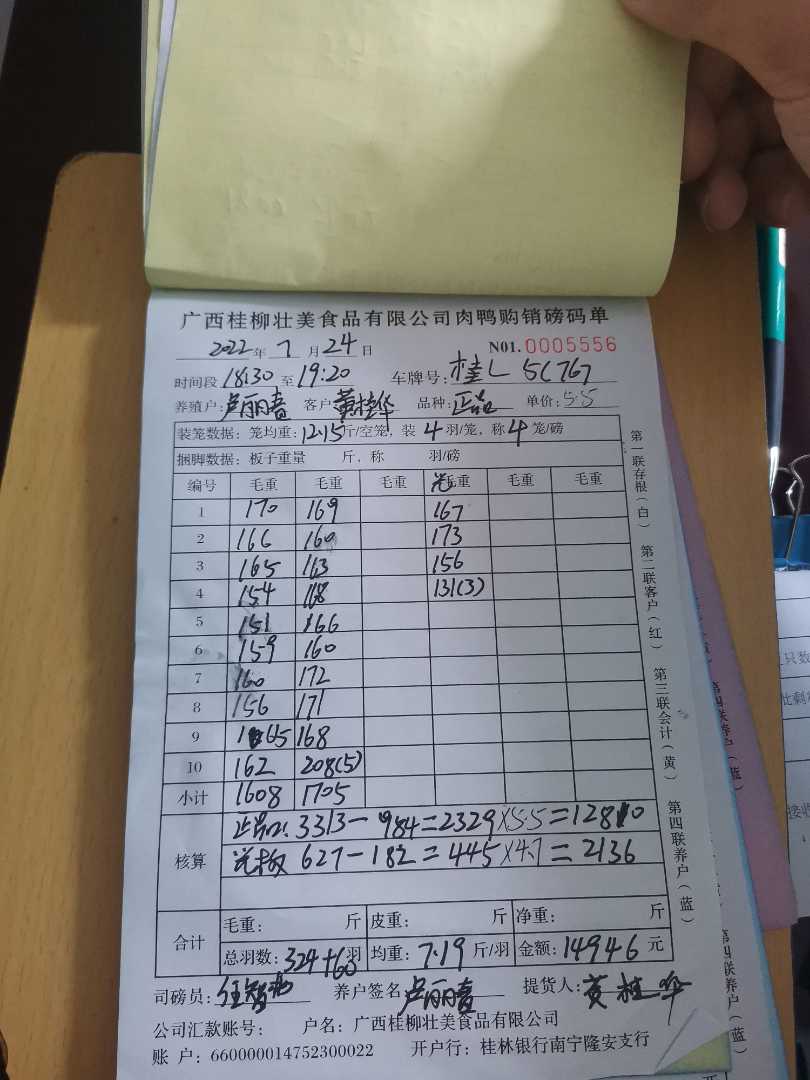 广西桂柳壮美食品有限公司肉鸭购销磅码单
2022年7月24日 N01.0005556
时间段18:30至19:20 车牌号:桂L 5C767
养殖户:卢丽春 客户黄桂华 品种: 单价:5.5
装笼数据:笼均重:12.15斤/空笼,装4羽/笼,称4笼/磅
捆脚数据:板子重量 斤,称 羽/磅
编号 毛重 毛重 毛重 毛重 毛重 毛重
1 170 169 167
2 166 160 173
3 165 163 156
4 154 168 131(3)
5 151 166
6 159 160
7 160 172
8 156 171
9 165 168
10 162 208(5)
小计 1608 1705
核算
3313-984=2329×5.5=12810
627-182=445×4.7=2136
合计
毛重: 斤 皮重: 斤 净重: 斤
总羽数:324+60羽 均重:7.19斤/羽 金额:14946元
司磅员: 养户签名:卢丽春 提货人:黄桂华
公司汇款账号: 户名:广西桂柳壮美食品有限公司
账户:660000014752300022 开户行:桂林银行南宁隆安支行
第一联存根(白) 第二联客户(红) 第三联会计(黄) 第四联养户(蓝)
第四联养户(蓝)
第四联养户(蓝)
只数
接收